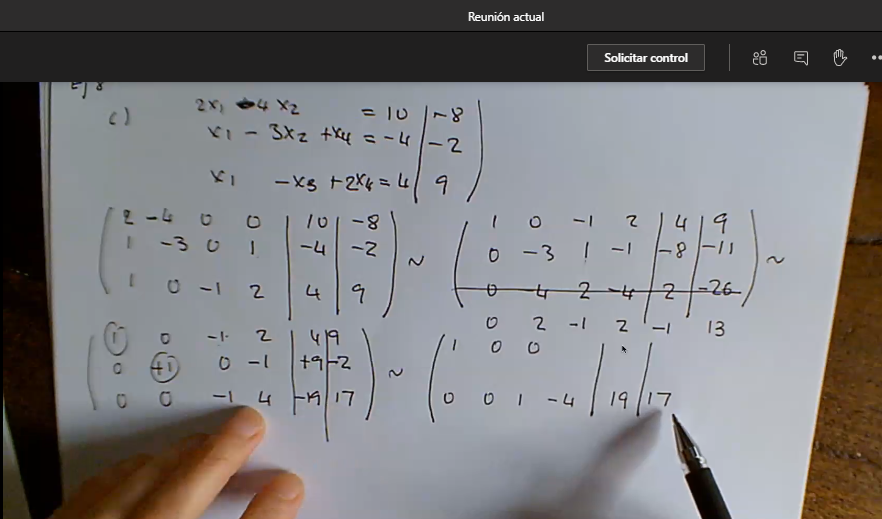 Reunión actual
Solicitar control
Ej 8
c) 2x₁ -4x₂ = 10 | -8
x₁ - 3x₂ + x₄ = -4 | -2
x₁ -x₃ + 2x₄ = 4 | 9
2 -4 0 0 | 10 | -8
1 -3 0 1 | -4 | -2
1 0 -1 2 | 4 | 9
~
1 0 -1 2 | 4 | 9
0 -3 1 -1 | -8 | -11
0 -4 2 -4 | 2 | -26
0 2 -1 2 | -1 13
~
1 0 -1 2 | 4 | 9
0 +1 0 -1 | +9 | -2
0 0 -1 4 | -19 | 17
~
1 0 0
0 0 1 -4 | 19 | 17